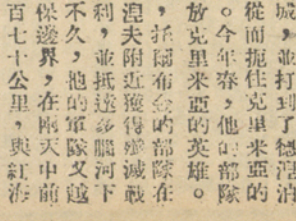 城，並打到了德涅泊
從而扼住克里米亞的
。今年春，他的部隊
放克里米亞的英雄。
，托爾布金的部隊在
涅夫附近獲得殲滅戰
利，並抵達多腦河下
不久，他的軍隊又越
保邊界，在兩天中前
百七十公里，與紅海